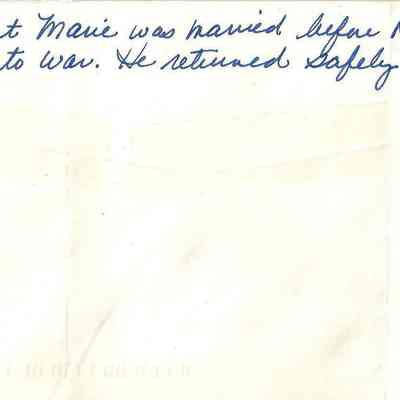 t Marie was married before
to war. He returned safely